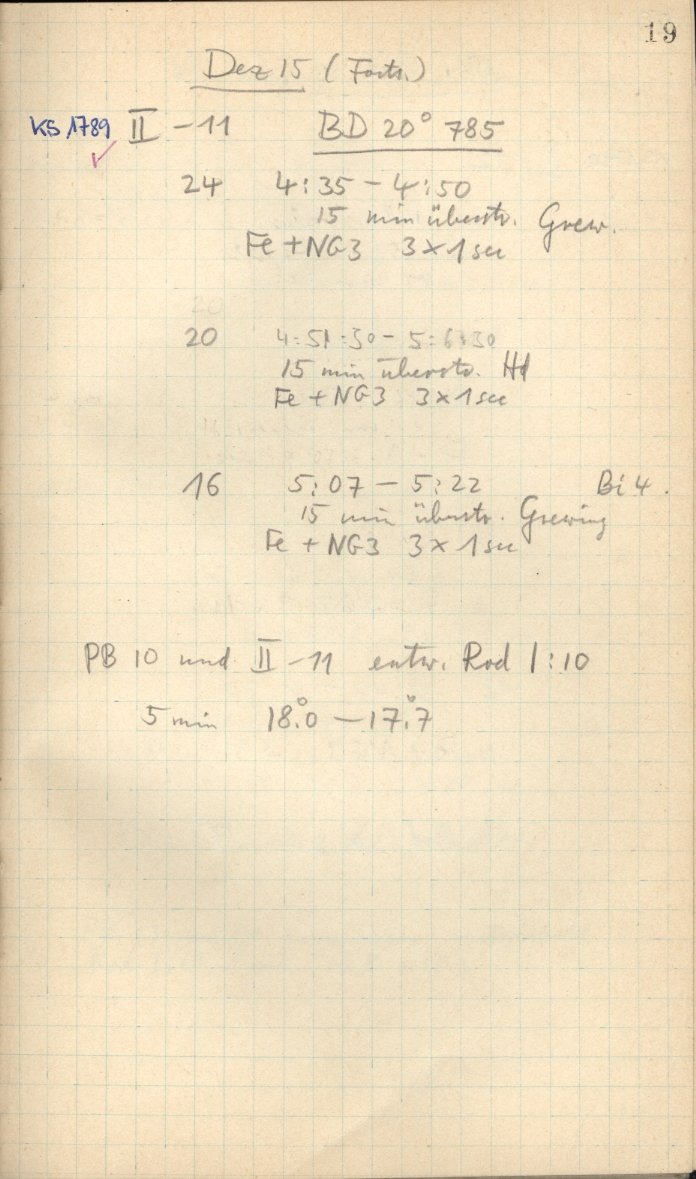 19
Dez 15 (Forts.)
KS 1789 II - 11 BD 20° 785
24 4:35 - 4:50
15 min überstr. Grew.
Fe + NG3 3 x 1 sec
20 4:51:30 - 5:6:30
15 min überstr. Hd
Fe + NG3 3 x 1 sec
16 5:07 - 5:22 Bi 4.
15 min überstr. Grewing
Fe + NG3 3 x 1 sec
PB 10 und II - 11 entw. Rod 1:10
5 min 18.°0 - 17.°7